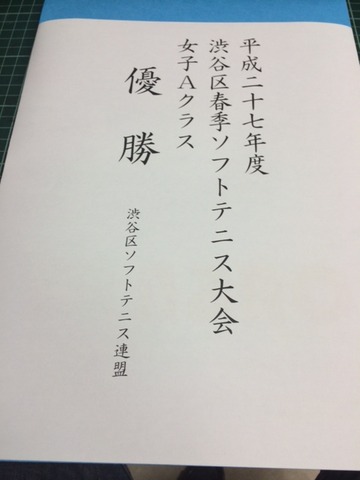 平成二十七年度
渋谷区春季ソフトテニス大会
女子Aクラス
優勝
渋谷区ソフトテニス連盟